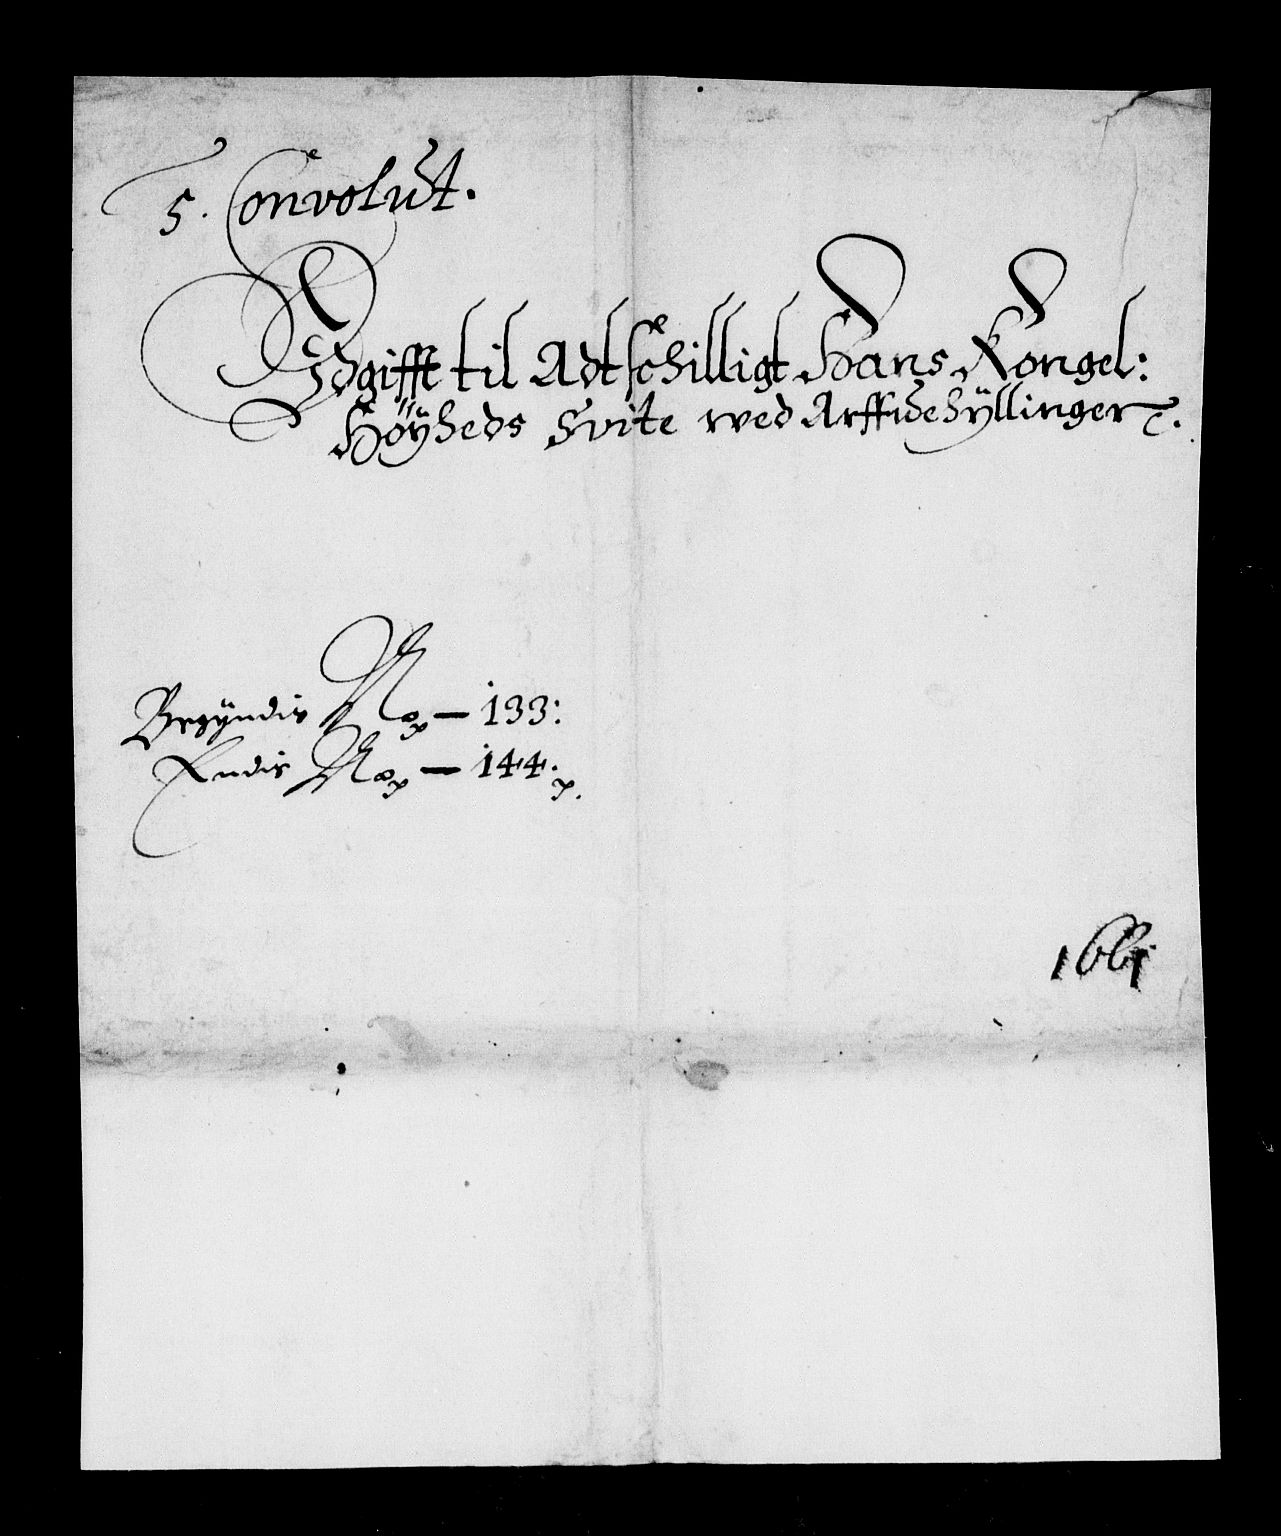 5. Convolut.
Vdgifft til Adtschilligt Hans Kongel:
Höÿheds Svite wed Arffuehÿllinger
Begÿndis No — 133:
Endis No — 144.
1661